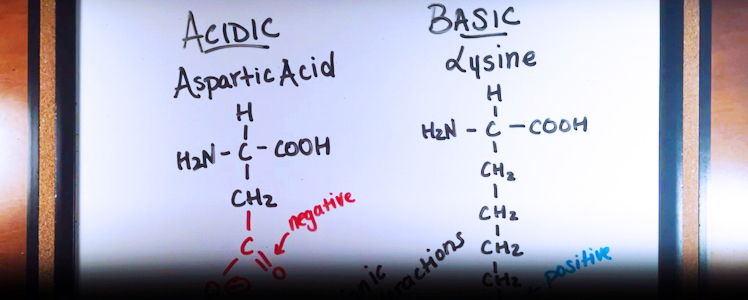 ACIDIC
Aspartic Acid
H
H2N - C - COOH
CH2
negative
C
O
BASIC
Lysine
H
H2N - C - COOH
CH2
CH2
CH2
CH2
positive